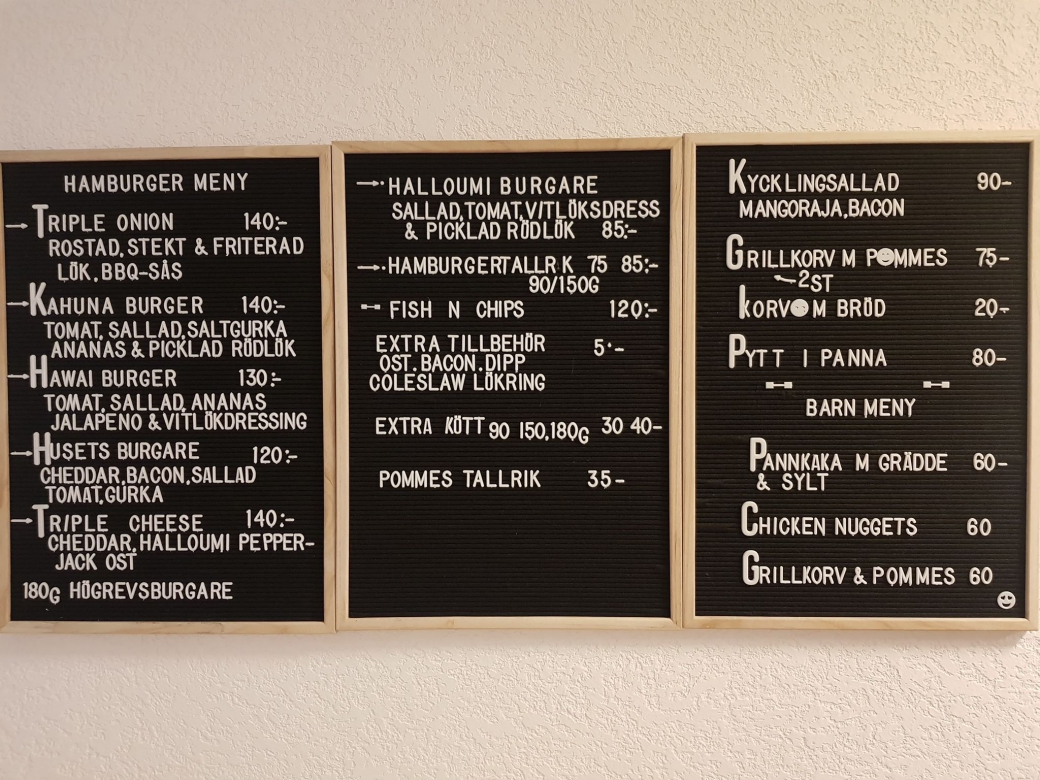 HAMBURGER MENY
TRIPLE ONION 140:-
ROSTAD, STEKT & FRITERAD
LÖK, BBQ-SÅS
KAHUNA BURGER 140:-
TOMAT, SALLAD, SALTGURKA
ANANAS & PICKLAD RÖDLÖK
HAWAI BURGER 130:-
TOMAT, SALLAD, ANANAS
JALAPENO & VITLÖKDRESSING
HUSETS BURGARE 120:-
CHEDDAR, BACON, SALLAD
TOMAT, GURKA
TRIPLE CHEESE 140:-
CHEDDAR, HALLOUMI PEPPER-
JACK OST
180G HÖGREVSBURGARE
HALLOUMI BURGARE
SALLAD, TOMAT, VITLÖKSDRESS
& PICKLAD RÖDLÖK 85:-
HAMBURGERTALLR K 75 85:-
90/150G
FISH N CHIPS 120:-
EXTRA TILLBEHÖR 5·-
OST. BACON. DIPP
COLESLAW LÖKRING
EXTRA KÖTT 90 150,180G 30 40-
POMMES TALLRIK 35-
KYCKLINGSALLAD 90-
MANGORAJA, BACON
GRILLKORV M POMMES 75-
2ST
KORV M BRÖD 20-
PYTT I PANNA 80-
BARN MENY
PANNKAKA M GRÄDDE 60-
& SYLT
CHICKEN NUGGETS 60
GRILLKORV & POMMES 60